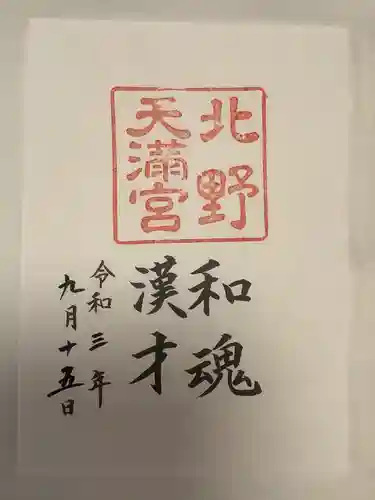 北野
天満宮
和魂
漢才
令和三年
九月十五日